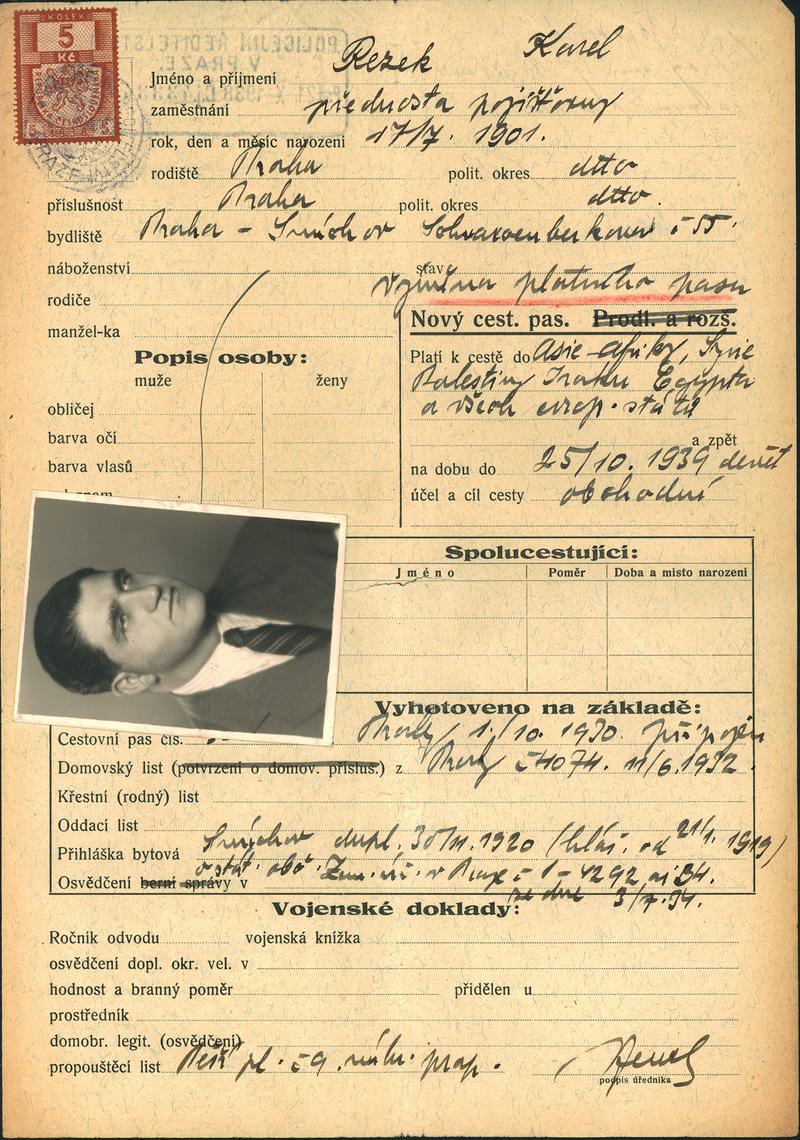 KOLEK
5
Kč
Rezek Karel
Jméno a příjmení
zaměstnání přednosta pojišťovny
rok, den a měsíc narození 17/7. 1901.
rodiště Praha polit. okres dtto
příslušnost Praha polit. okres dtto.
bydliště Praha - Smíchov
náboženství stav
výměna platného pasu
rodiče
manžel-ka
Nový cest. pas. Prodl. a rozš.
Popis osoby:
muže ženy
obličej
barva očí
barva vlasů
Platí k cestě do Asie Afriky, Syrie
Palestiny Iraku Egypta
a všech evrop. států
a zpět
na dobu do 25/10. 1939
účel a cíl cesty obchodní
Spolucestující:
Jméno Poměr Doba a místo narození
Vyhotoveno na základě:
Cestovní pas čís. 1/10. 1930.
Domovský list (potvrzení o domov. přísluš.) z 11/6.1932
Křestní (rodný) list
Oddací list
Přihláška bytová Smíchov dupl. 1920 1919)
Osvědčení berní správy v o stát. obč. Zem. úř. v Praze
ze dne 3/7.34.
Vojenské doklady:
Ročník odvodu vojenská knížka
osvědčení dopl. okr. vel. v
hodnost a branný poměr přidělen u
prostředník
domobr. legit. (osvědčení)
propouštěcí list Pěší pl.
podpis úředníka